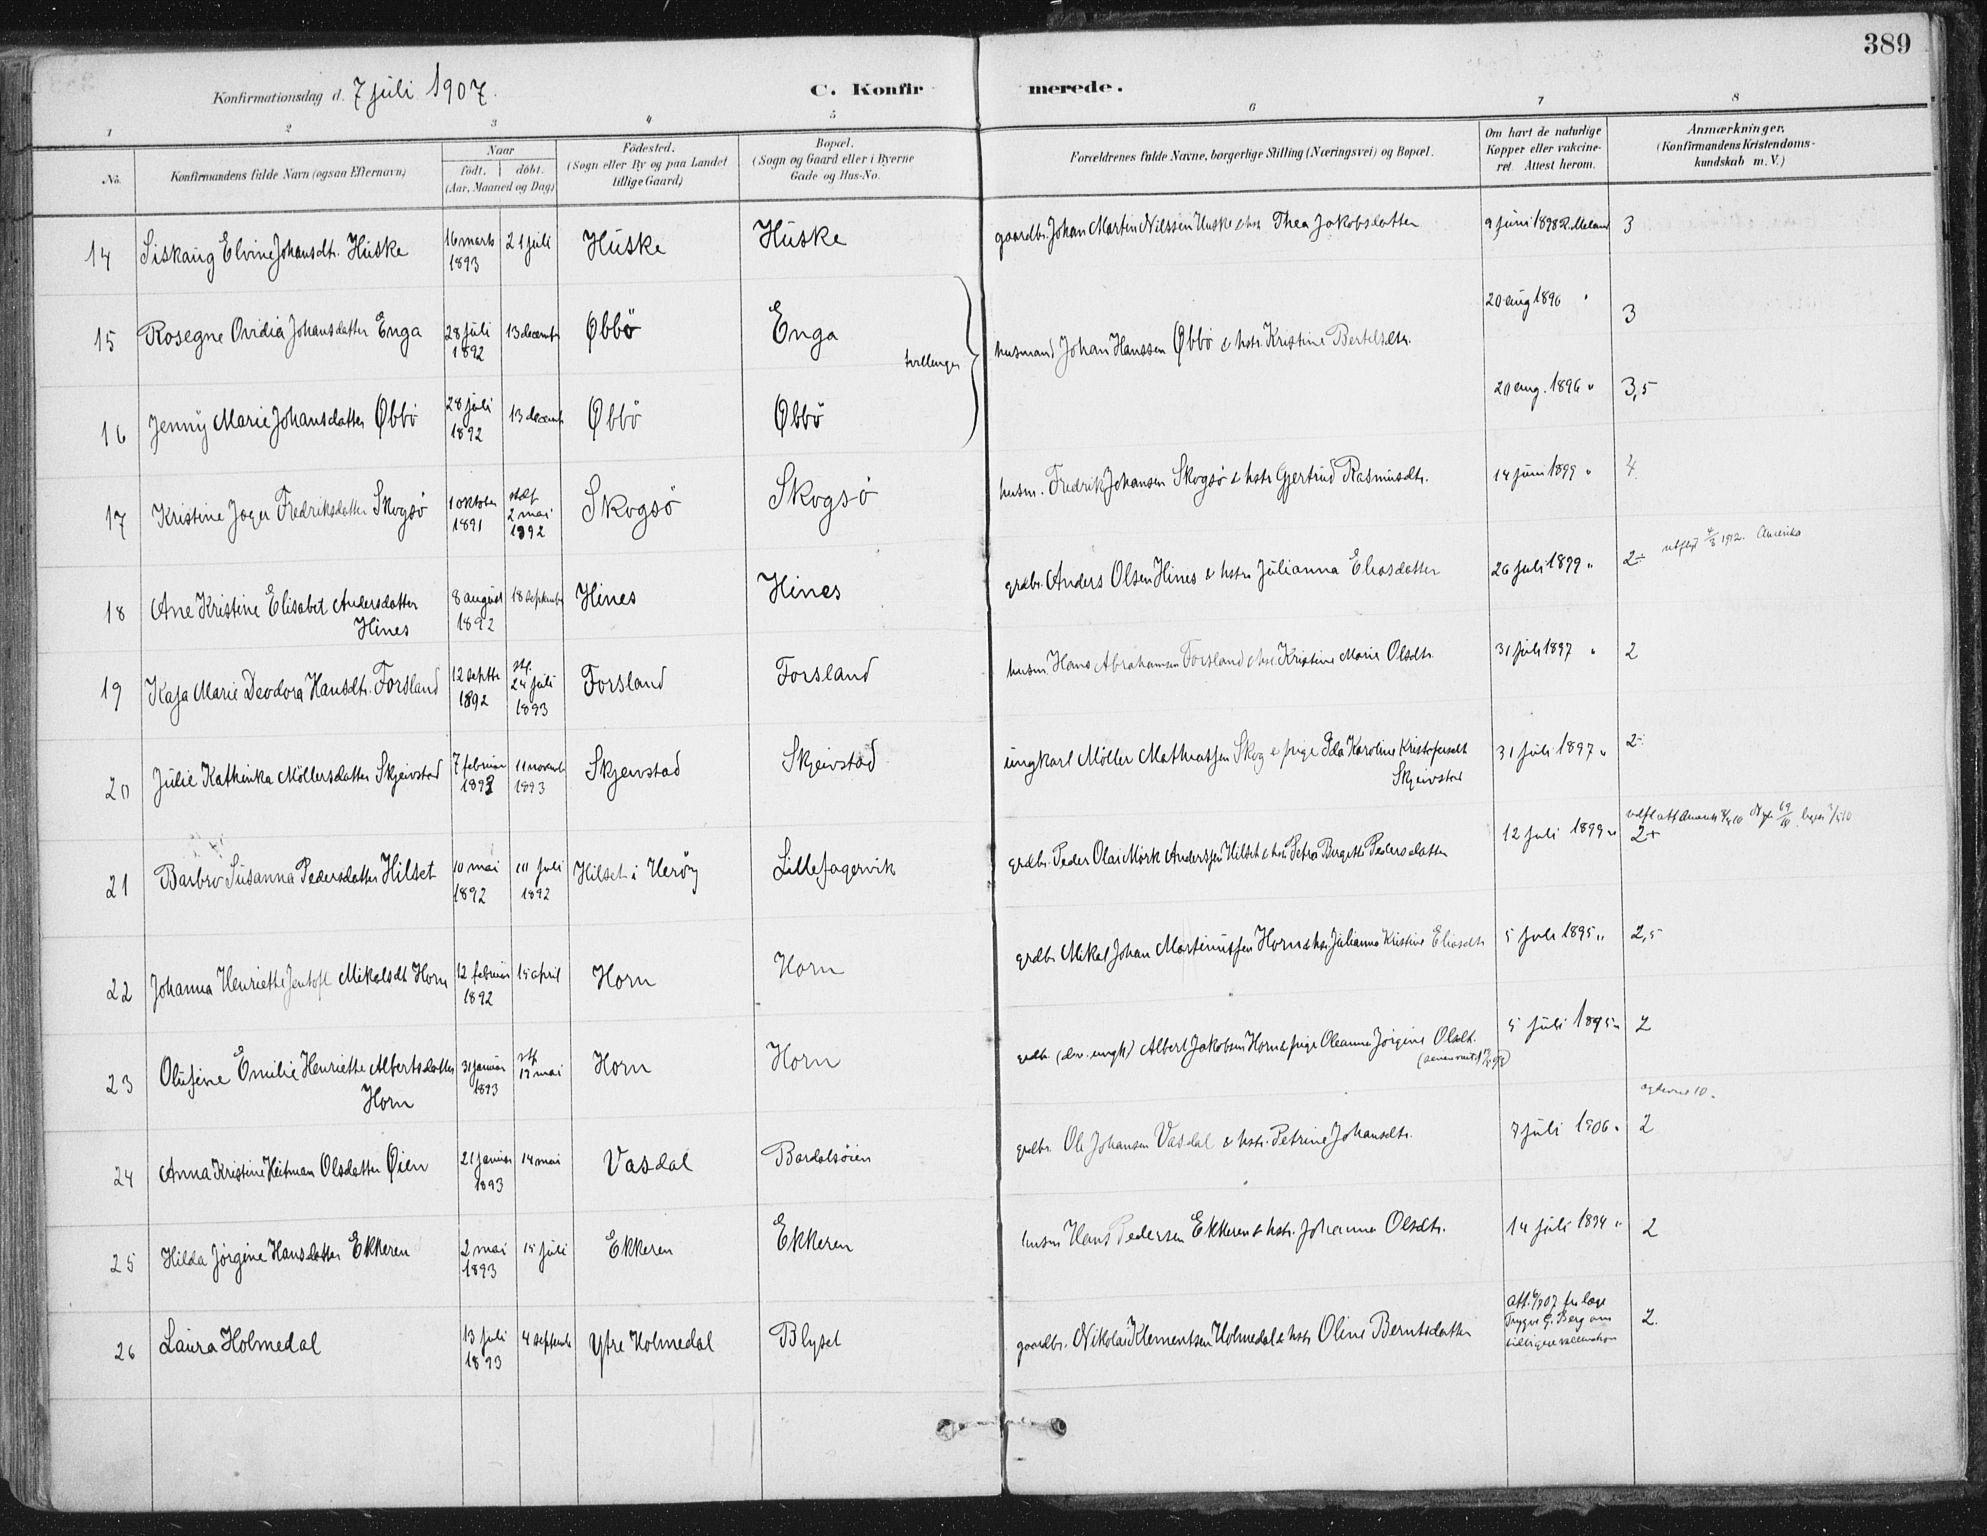 389
Konfirmationsdag d. 7 juli 1907.
C. Konfirmerede.
1 2 3 4 5 6 7 8
No.
Konfirmandens fulde Navn (ogsaa Efternavn)
Naar
födt. döbt.
(Aar, Maaned og Dag)
Födested.
(Sogn eller By og paa Landet
tillige Gaard)
Bopæl.
(Sogn og Gaard eller i Byerne
Gade og Hus-No.
Forældrenes fulde Navne, borgerlige Stilling (Næringsvei) og Bopæl.
Om havt de naturlige
Kopper eller vakcine-
ret. Attest herom.
Anmærkninger.
(Konfirmandens Kristendoms-
kundskab m. V.)
14 Elvine Johansdtr. Huske 16 marts 1893 21 juli Huske Huske gaardbr. Johan Martin Nilssen Huske & hstr Thea Jakobsdatter 9 juni 1898 3
15 Rosegne Ovidia Johansdatter Enga 28 juli 1892 13 decemb Øbbö Enga husmand Johan Hanssen Øbbö & hstr. Kristine Bertelsdtr. 20 aug 1896 " 3
tvillinger
16 Jenny Marie Johansdatter Øbbö 28 juli 1892 13 decemb Øbbö Øbbö 20 aug. 1896 " 3,5
17 Kristine Fredriksdatter Skogsö 1 oktober 1891 stdf 2 mai 1892 Skogsö Skogsö husm. Fredrik Johansen Skogsö & hstr Gjertrud Rasmusdtr. 14 juni 1899 " 4.
18 Ane Kristine Elisabet Andersdatter Hines 8 august 1892 18 septembr Hines Hines grdbr. Anders Olsen Hines & hstr Julianna Eliasdatter 26 juli 1899 " 2÷ 1912. Amerika
19 Kaja Marie Deodora Hansdtr. Forsland 12 septbr 1892 stf. 24 juli 1893 Forsland Forsland husm Hans Abrahamsen Forsland & hst Kristine Marie Olsdtr. 31 juli 1897 " 2
20 Julie Kathinka Möllersdatter Skjeivstad 7 februar 1893 11 novemb 1893 Skjeivstad Skjeivstad ungkarl Møller Mathiassen Skog & pige Ida Karoline Kristofersdt Skjeivstad 31 juli 1897 " 2÷
21 Barbro Susanna Pedersdatter Hilset 10 mai 1892 juli 1892 Hilset i Herøy Lille fagervik grdbr. Peder Olai Mörk Anderssen Hilset & hstr Petra Bergitte Pedersdatter 12 juli 1899 " 2+
22 Johanna Henriette Jentoft Mikalsdt Horn 12 februar 1892 15 april Horn Horn grdbr Mikal Johan Martinussen Horn & hstr Julianna Kristine Eliasdtr 5 juli 1895 " 2,5
23 Olufine Emilie Henriette Albertsdatter Horn 31 januar 1893 stf 17 mai Horn Horn grdbr. (dav. ungk) Albert Jakobsen Horn & pige Oleanna Jörgine Olsdt. 5 juli 1895 " 2
24 Anna Kristine Heitman Olsdatter Øien 21 januar 1893 14 mai Vasdal Bardalsöien grdbr. Ole Johansen Vasdal & hstr. Petrine Johansdtr. 7 juli 1906 " 2
25 Hilda Jörgine Hansdatter Ekkeren 2 mai 1893 15 juli Ekkeren Ekkeren husm Hans Pedersen Ekkeren & hstr. Johanna Olsdtr. 14 juli 1894 " 2
26 Laura Holmedal 13 juli 1893 4 septemb Ytre Holmedal Blyset gaardbr. Nikolai Klementsen Holmedal & hstr Oline Berntsdatter Trygve G. Berg om 2.